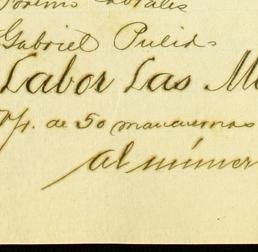 Gabriel Pulido
Labor Las M
de 50 mancuernas
al númer